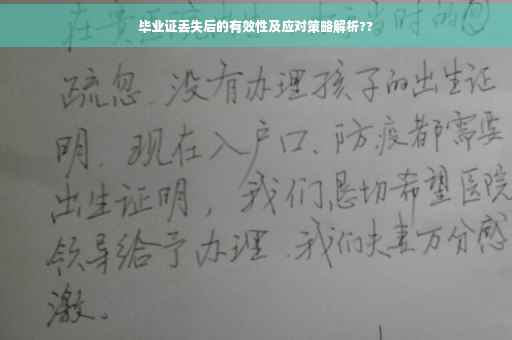 毕业证丢失后的有效性及应对策略解析??
疏忽、没有办理孩子的出生证
明、现在入户口、防疫都需要
出生证明，我们恳切希望医院
领导给予办理、我们夫妻万分感
激。